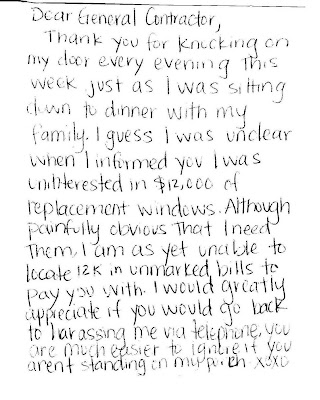 Dear General Contractor,
Thank you for knocking on
my door every evening this
week just as I was sitting
down to dinner with my
family. I guess I was unclear
when I informed you I was
uninterested in $12,000 of
replacement windows. Although
painfully obvious that I need
them, I am as yet unable to
locate 12K in unmarked bills to
pay you with. I would greatly
appreciate if you would go back
to harassing me via telephone, you
are much easier to ignore if you
arent standing on my porch. xoxo